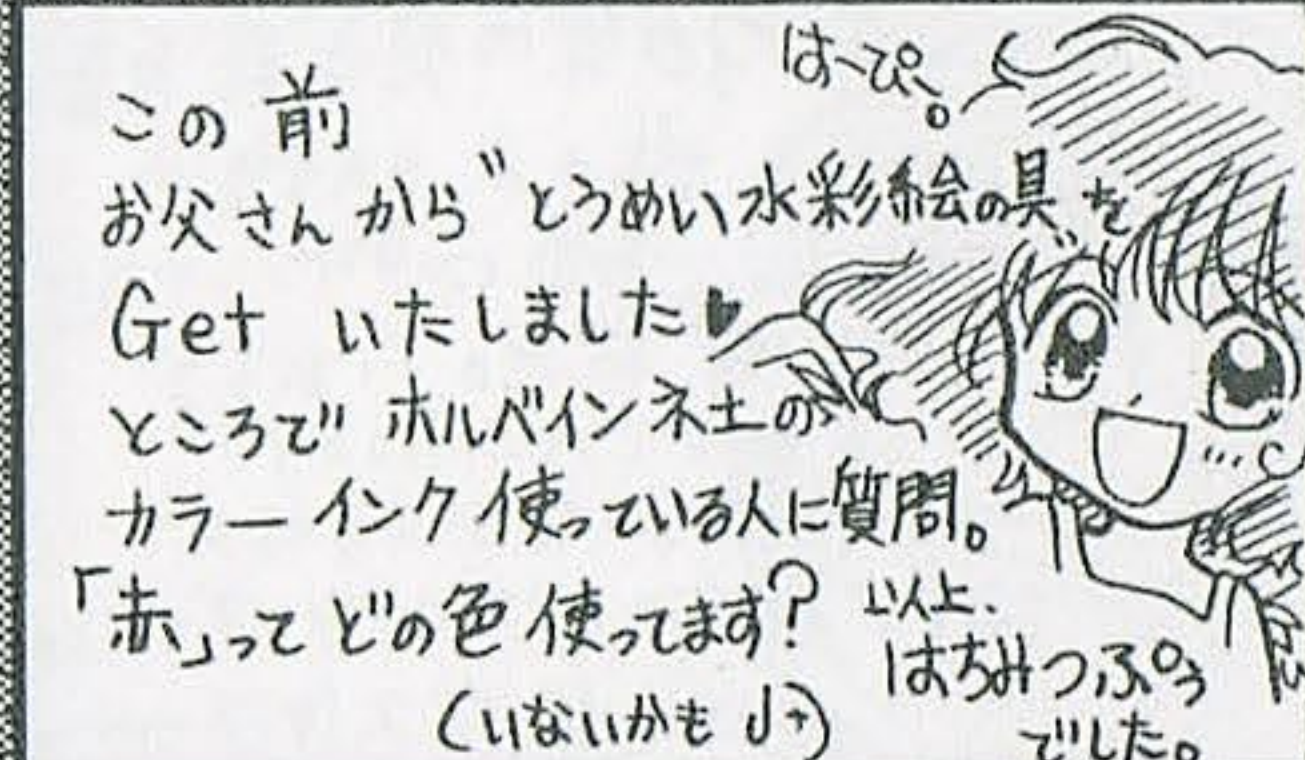 はーぴー。
この前
お父さんから"とうめい水彩絵の具"を
Get いたしました♥
ところで ホルベイン社の
カラーインク使っている人に質問。
「赤」って どの色 使ってます?
(いないかも
以上、
はちみつぷぅ
でした。